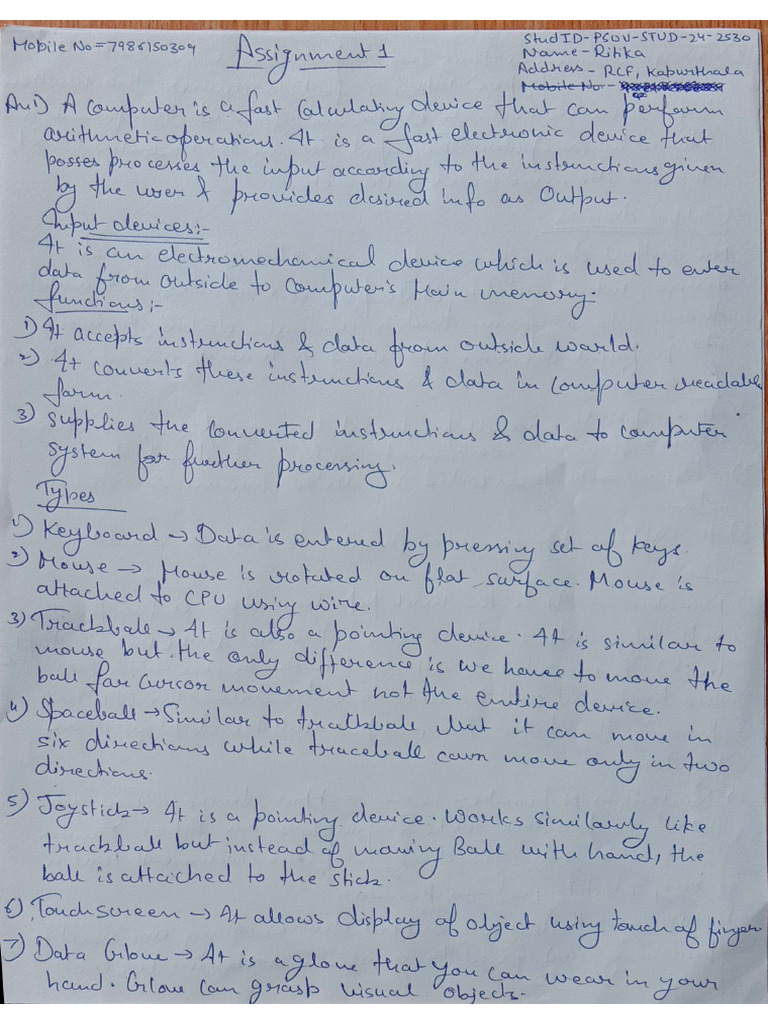 Mobile No = 7986150304
Assignment 1
StudID- PSOU-STUD-24-2530
Name - Ritika
Address - RCF, Kapurthala
Mobile No -
Ans1) A computer is a fast calculating device that can perform
arithmetic operations. It is a fast electronic device that
posses processes the input according to the instructions given
by the user & provides desired info as Output.
Input devices:-
It is an electromechanical device which is used to enter
data from outside to computer's Main memory.
functions:-
1) It accepts instructions & data from outside world.
2) It converts these instructions & data in computer readable
form.
3) Supplies the converted instructions & data to computer
system for further processing.
Types
1) Keyboard → Data is entered by pressing set of keys.
2) Mouse → Mouse is rotated on flat surface. Mouse is
attached to CPU using wire.
3) Trackball → It is also a pointing device. It is similar to
mouse but the only difference is we have to move the
ball for cursor movement not the entire device.
4) Spaceball → Similar to trackball but it can move in
six directions while traceball can move only in two
directions.
5) Joystick → It is a pointing device. Works similarly like
trackball but instead of moving Ball with hand, the
ball is attached to the stick.
6) Touchscreen → It allows display of object using touch of finger
7) Data Glove → It is a glove that you can wear in your
hand. Glove can grasp visual objects.